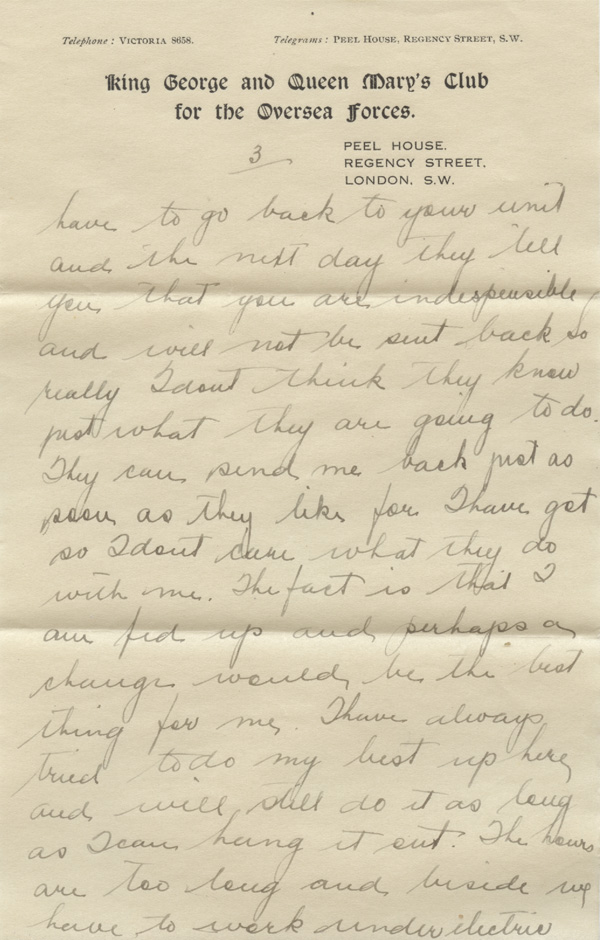 Telephone: VICTORIA 8658. Telegrams: PEEL HOUSE, REGENCY STREET, S.W.
King George and Queen Mary's Club
for the Oversea Forces.
3
PEEL HOUSE.
REGENCY STREET,
LONDON, S.W.
have to go back to your unit
and the next day they tell
you that you are indespensible
and will not be sent back so
really I dont think they know
just what they are going to do.
They can send me back just as
soon as they like for I have got
so I dont care what they do
with me. The fact is that I
am fed up and perhaps a
change would be the best
thing for me. I have always
tried to do my best up here
and will still do it as long
as I can hang it out. The hours
are too long and beside we
have to work under electric